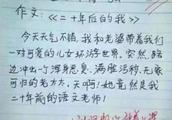 作文：《二十年后的我》
今天天气不错，我和老婆带着我们
一对可爱的儿女环游世界，突然，路
边冲出个浑身恶臭、满脸污秽、无家
可归的老太太，天啊！她竟然是我
二十年前的语文老师！